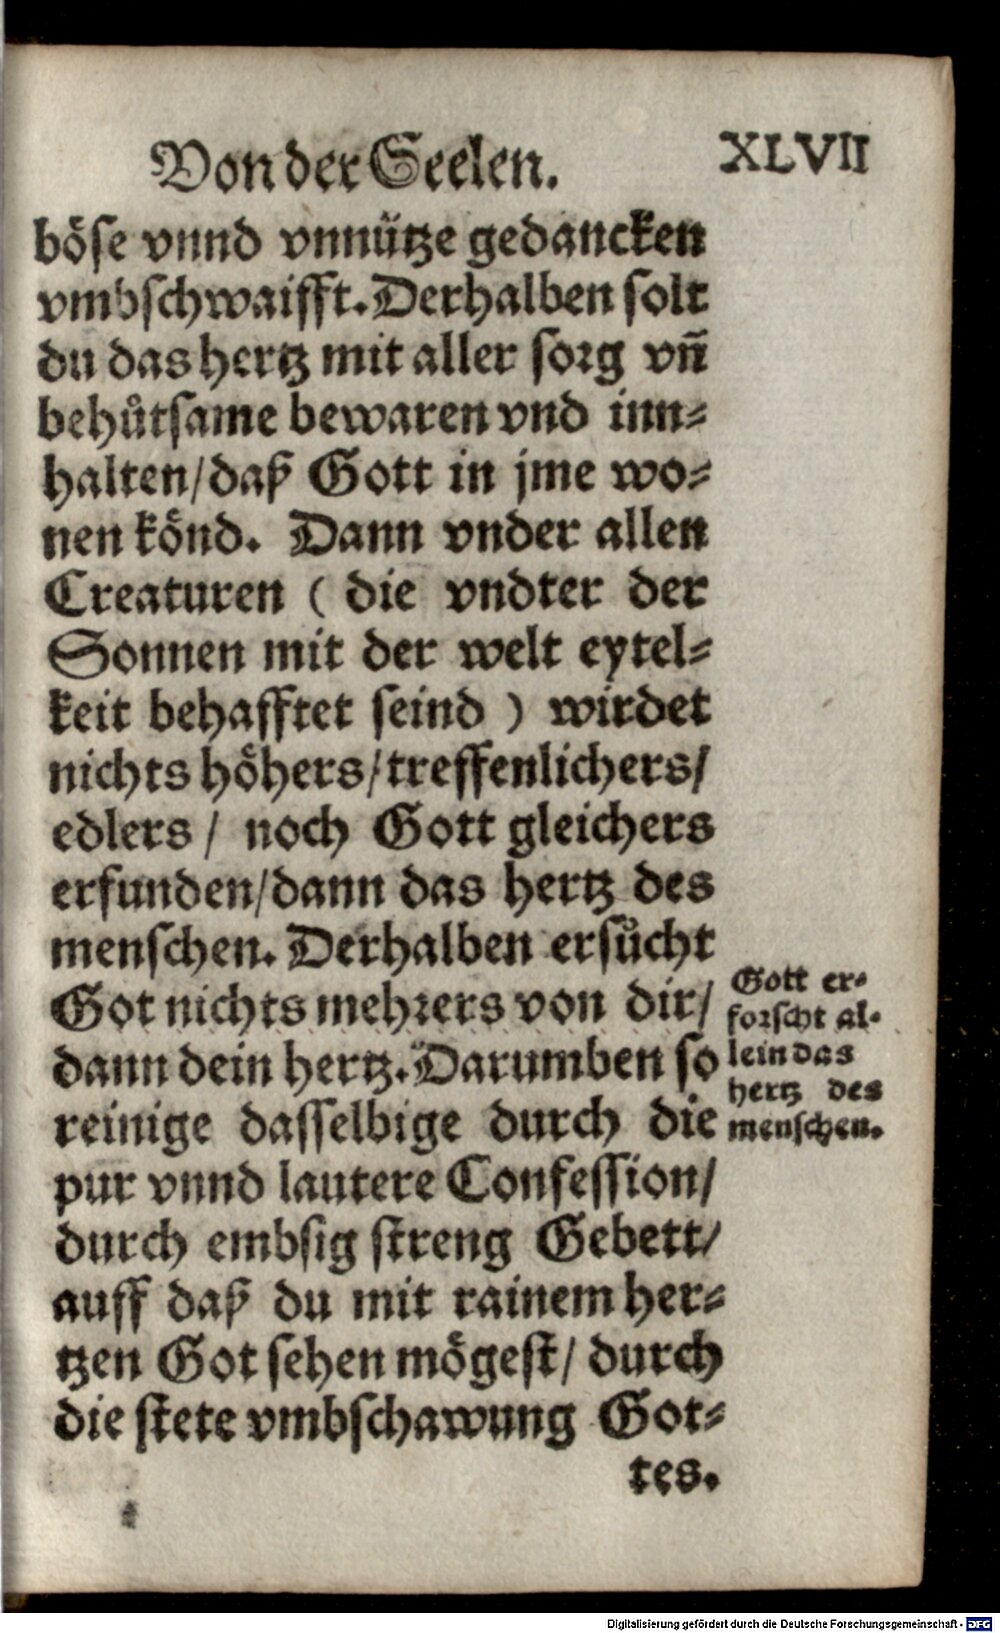 Von der Seelen.
XLVII
böse vnnd vnnütze gedancken
vmbschwaifft. Derhalben solt
du das hertz mit aller sorg vñ
behůtsame bewaren vnd inn-
halten/daß Gott in jme wo-
nen könd. Dann vnder allen
Creaturen ( die vndter der
Sonnen mit der welt eytel-
keit behafftet seind ) wirdet
nichts höhers/treffenlichers/
edlers / noch Gott gleichers
erfunden/dann das hertz des
menschen. Derhalben ersůcht
Got nichts mehrers von dir/
dann dein hertz. Darumben so
reinige dasselbige durch die
pur vnnd lautere Confession/
durch embsig streng Gebett/
auff daß du mit rainem her-
tzen Got sehen mögest/ durch
die stete vmbschawung Got-
tes.
Gott er-
forscht al-
lein das
hertz des
menschen.
Digitalisierung gefördert durch die Deutsche Forschungsgemeinschaft - DFG